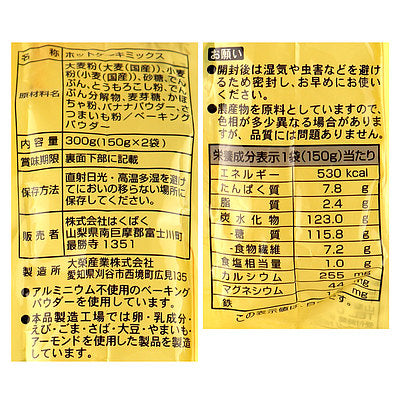 名称 ホットケーキミックス
原材料名 大麦粉(大麦(国産))、小麦
粉(小麦(国産))、砂糖、でん
ぷん、とうもろこし粉、でん
ぷん分解物、麦芽糖、かぼ
ちゃ粉、バナナパウダー、さ
つまいも粉/ベーキング
パウダー
内容量 300g(150g×2袋)
賞味期限 裏面下部に記載
保存方法 直射日光・高温多湿を避け
てにおいの移らない場所に
保存してください。
販売者 株式会社はくばく
山梨県南巨摩郡富士川町
最勝寺1351
製造所 大榮産業株式会社
愛知県刈谷市西境町広見135
●アルミニウム不使用のベーキング
パウダーを使用しています。
●本品製造工場では卵・乳成分・
えび・ごま・さば・大豆・やまいも・
アーモンドを使用した製品を製造
しています。
お願い
●開封後は湿気や虫害などを避け
るため密封し、お早めにお使い
ください。
●農産物を原料としていますので、
色相が多少異なる場合があり
ますが、品質には問題ありません。
栄養成分表示1袋(150g)当たり
エネルギー 530 kcal
たんぱく質 7.8 g
脂質 2.4 g
炭水化物 123.0 g
-糖質 115.8 g
-食物繊維 7.2 g
食塩相当量 1.0 g
カルシウム 255 mg
マグネシウム 44 mg
鉄 mg
この表示値は、